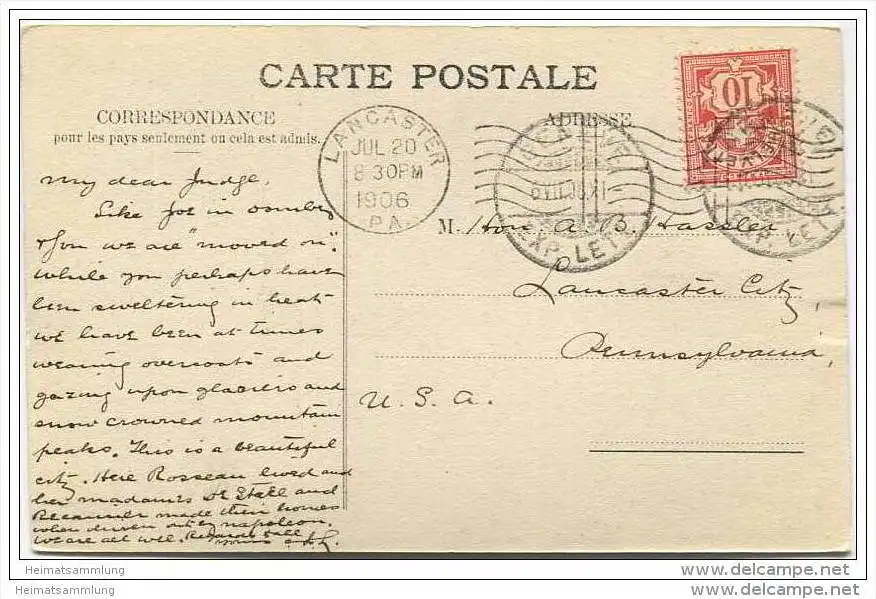 CARTE POSTALE
CORRESPONDANCE
pour les pays seulement ou cela est admis.
ADRESSE
LANCASTER
JUL 20
8 30 PM
1906
PA.
GENÈVE
EXP. LETT
10
HELVETIA
My dear Judge.
Like Joe in
you we are "moved on".
While you perhaps have
been sweltering in heat
we have been at times
wearing overcoats and
gazing upon glaciers and
snow crowned mountain
peaks. This is a beautiful
city. Here Rosseau lived and
her madames De Stael and
Recamier made their homes
when driven out by napoleon.
We are all well. Regards to all
yours
M. Hon. A. B. Hassler
Lancaster City,
Pennsylvania,
U. S. A.
Heimatsammlung
Heimatsammlung
www.delcampe.net
www.delcampe.net